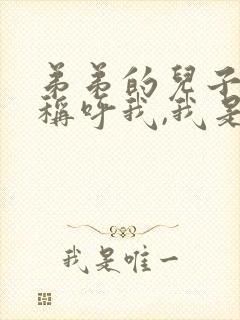 弟弟的兒子
稱呼我,我是
我是唯一